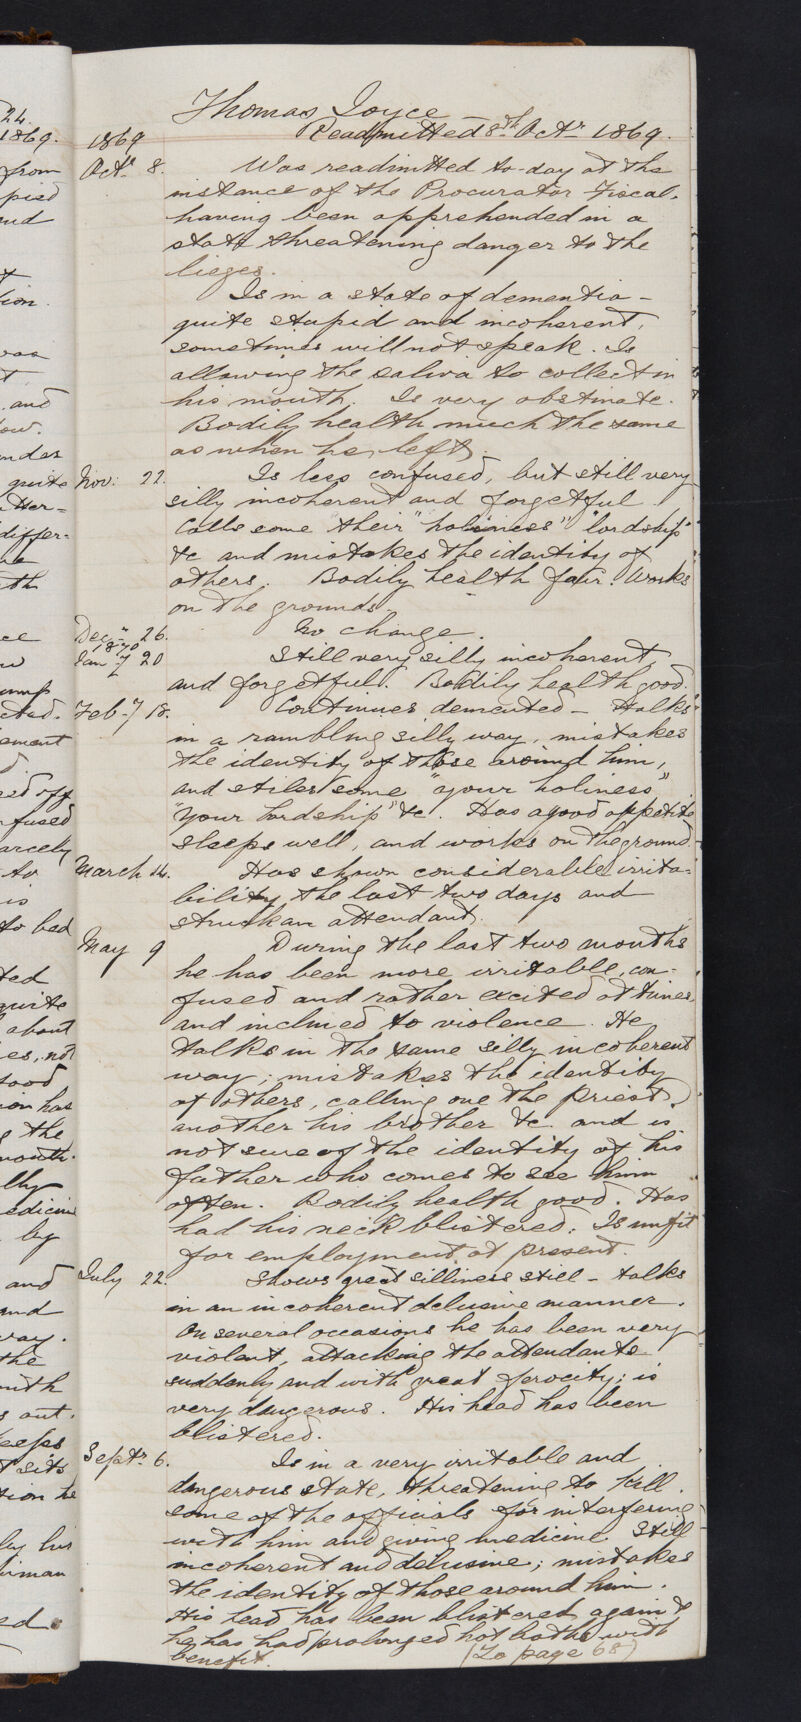 Thomas Joyce
Readmitted 8th Octr 1869.
1869
Octr 8. Was readmitted to-day at the
instance of the Procurator Fiscal.
having been apprehended in a
state threatening danger to the
lieges.
Is in a state of dementia -
quite stupid and incoherent,
sometimes will not speak. Is
allowing the saliva to collect in
his mouth. Is very obstinate.
Bodily health much the same
as when he left.
Nov: 22. Is less confused, but still very
silly incoherent and forgetful
Calls some "their "holiness" "lordship"
&c and mistakes the identity of
others. Bodily health fair. Works
on the grounds.
Decr 26. No change.
1870
Jany 20 Still very silly incoherent
and forgetful. Bodily health good.
Feby 18. Continues demented - Talks
in a rambling silly way, mistakes
the identity of those around him,
and stiles some "your holiness"
"your Lordship" &c. Has a good appetite
sleeps well, and works on the ground
March 14. Has shown considerable irrita=
bility the last two days and
struck an attendant.
May 9 During the last two months
he has been more irritable, con-
fused and rather excited at times
and inclined to violence. He
talks in the same silly incoherent
way; mistakes the identity
of others, calling one the priest,
another his brother &c and is
not sure of the identity of his
father who comes to see him
often. Bodily health good. Has
had his neck blistered. Is unfit
for employment at present.
July 22. Shows great silliness still - talks
in an incoherent delusive manner.
On several occasions he has been very
violent, attacking the attendants
suddenly and with great ferocity; is
very dangerous. His head has been
blistered.
Septr 6. Is in a very irritable and
dangerous state, threatening to kill
some of the officials for interfering
with him and giving medicine. Still
incoherent and delusive; mistakes
the identity of those around him.
His head has been blistered again &
he has had prolonged hot baths with
benefit. (To page 68)